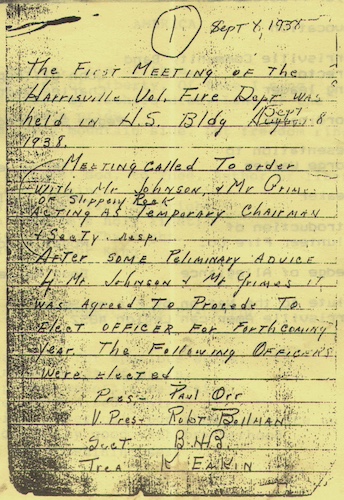 1
Sept 8, 1938
The First Meeting of the
Harrisville Vol. Fire Dept was
held in H.S. Bldg Sept 8
1938.
Meeting Called To order
with Mr Johnson, & Mr Grimes
of Slippery Rock
Acting As Temporary Chairman
& Sec'ty. resp.
After some Poliminary Advice
by Mr. Johnson & Mr. Grimes it
was agreed To Procede To
Elect officer for Forthcoming
year. The Following Officers
were elected
Pres- Paul Orr
V. Pres- Robt Bollman
Sect B.N.B.
Trea K Eakin